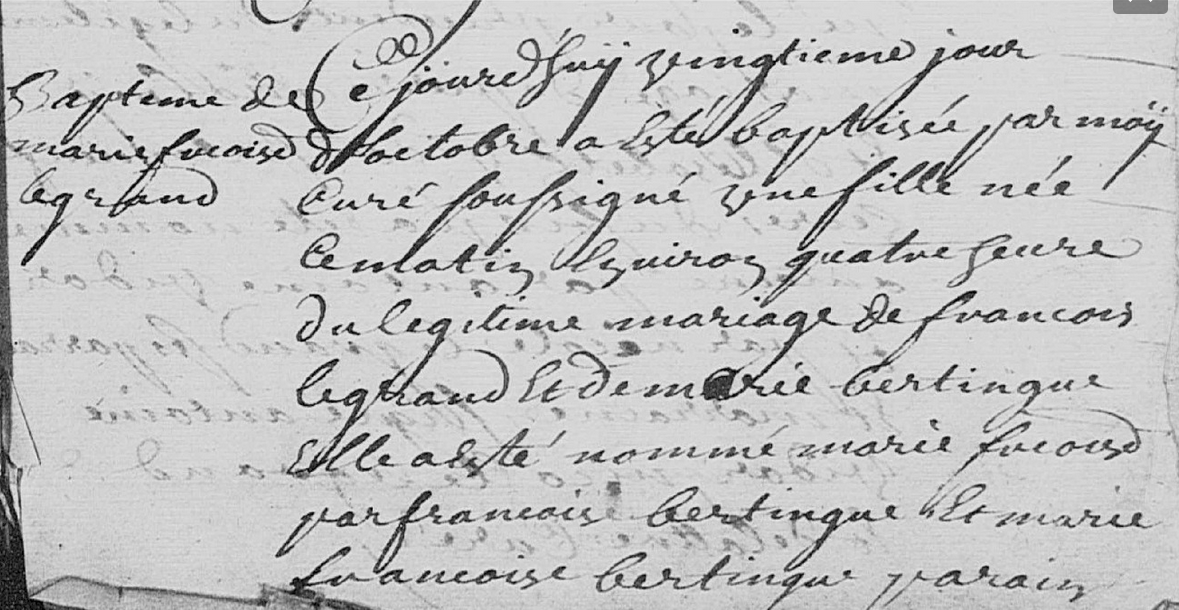 Bapteme de
marie frcoise
legrand
Ce jourdhuÿ vingtieme jour
d'octobre a esté baptisée par moÿ
Curé soussigné une fille née
Cematin Environ quatre heure
du legitime mariage de francois
legrand Et de marie bertingue
Elle a esté nommé marie frcoise
par francois bertingue Et marie
francoise bertingue parain